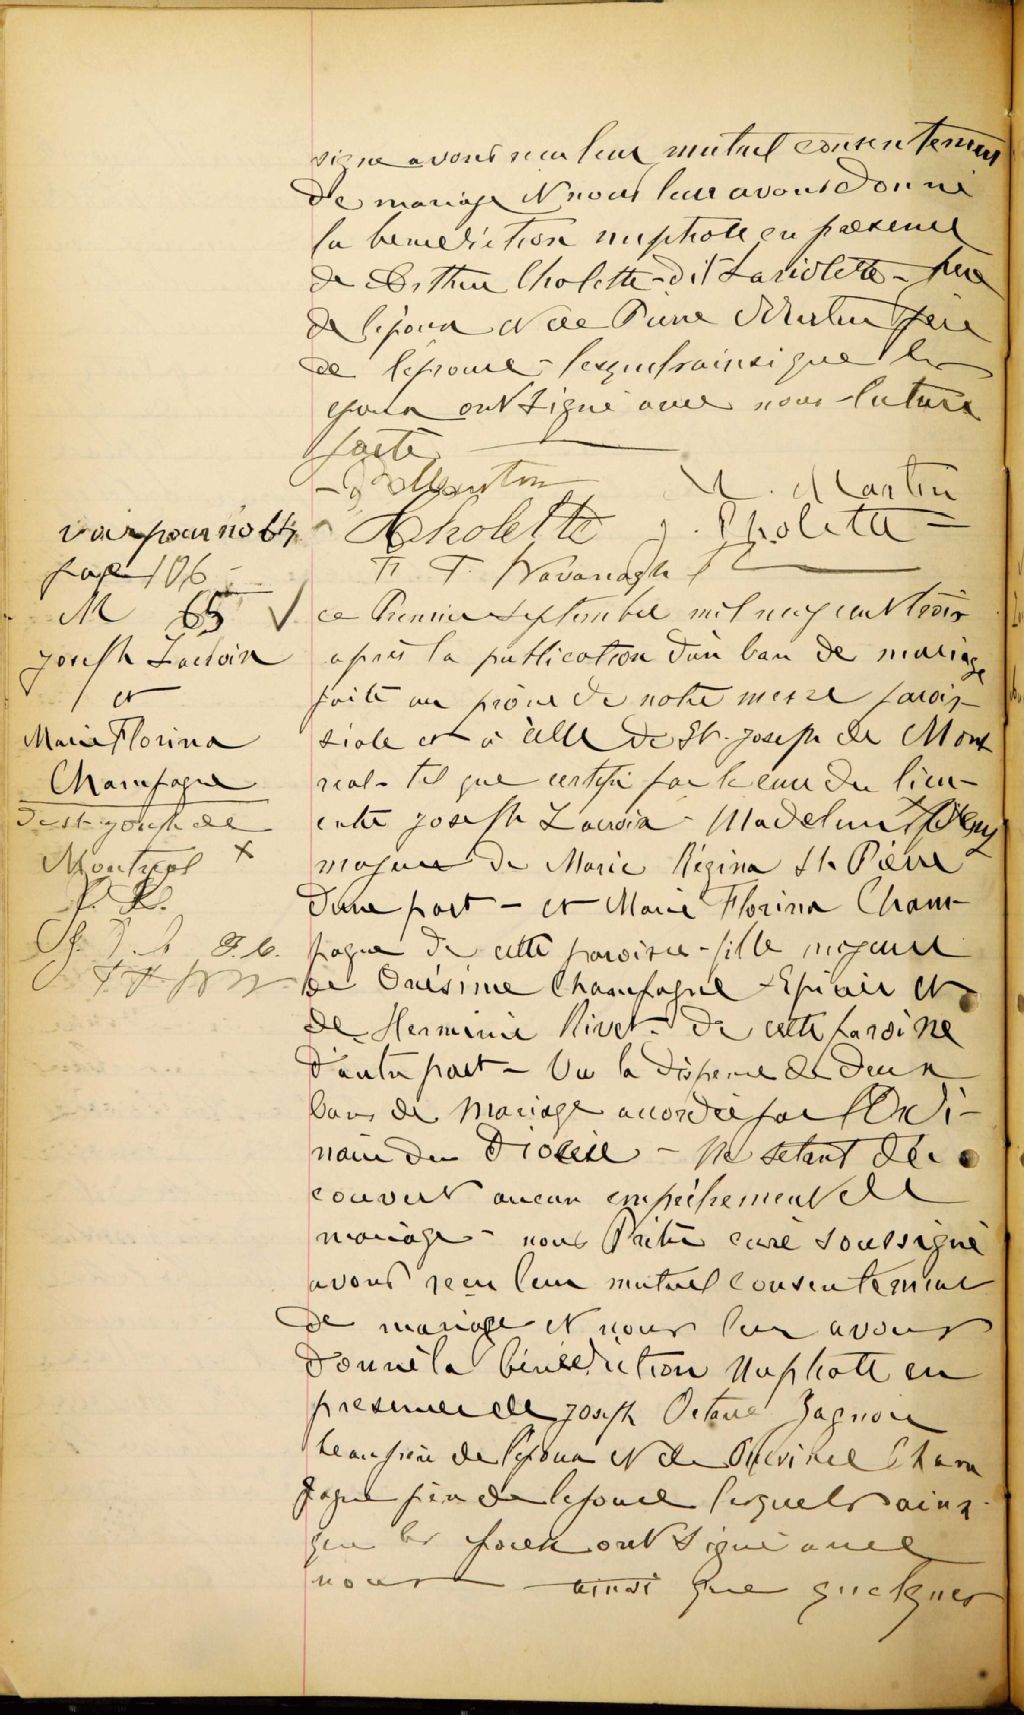 signé avons reçu leur mutuel consentement
de mariage et nous leur avons donné
la benediction nuptiale en presence
de Arthur Cholette dit Laviolette - père
de l'époux et de Pierre Martin père
de l'épouse - lesquels ainsi que les
époux ont signé avec nous lecture
faite
Martin M. Martin
Cholette J. Cholette
F. F. Kavanagh
voir pour no 64
page 106 -
M 65
Joseph Lacroix
et
Marie Florina
Champagne
De St Joseph de
Montreal X
ce Premier Septembre mil neuf cent trois
après la publication d'un ban de mariage
faite au prône de notre messe parois-
siale et à celle de St. Joseph de Mont
real - tel que certifié par le curé du lieu -
entre Joseph Lacroix -
majeur de Marie Régina St Pierre
d'une part - et Marie Florina Cham-
pagne de cette paroisse - fille mineure
de Onésime Champagne Epicier et
de Herminie Rivet - de cette paroisse
d'autre part - Vu la dispense de deux
bans de mariage accordée par l'Ordi-
naire du Diocèse - Ne setant dé-
couvert aucun empêchement de
mariage - nous Prêtre curé soussigné
avons reçu leur mutuel consentement
de mariage et nous leur avons
donné la bénédiction nuptiale en
presence de Joseph Octave Gagnon
beau frère de l'époux et de Onésime Cham
pagne père de l'épouse lesquels ainsi
que les époux ont signé avec
nous ainsi que quelques